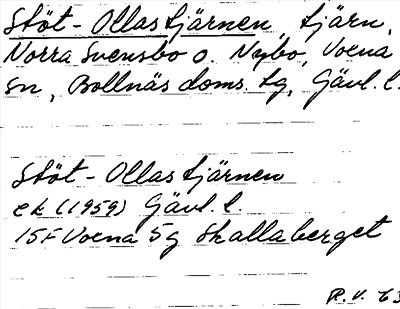 Stöt-Ollastjärnen, tjärn,
Norra Svensbo o. Nybo, Voxna
sn, Bollnäs doms. tg, Gävl. l.
Stöt-Ollastjärnen
ek (1959) Gävl. l.
15F Voxna 5g Skallaberget
R.V. 63